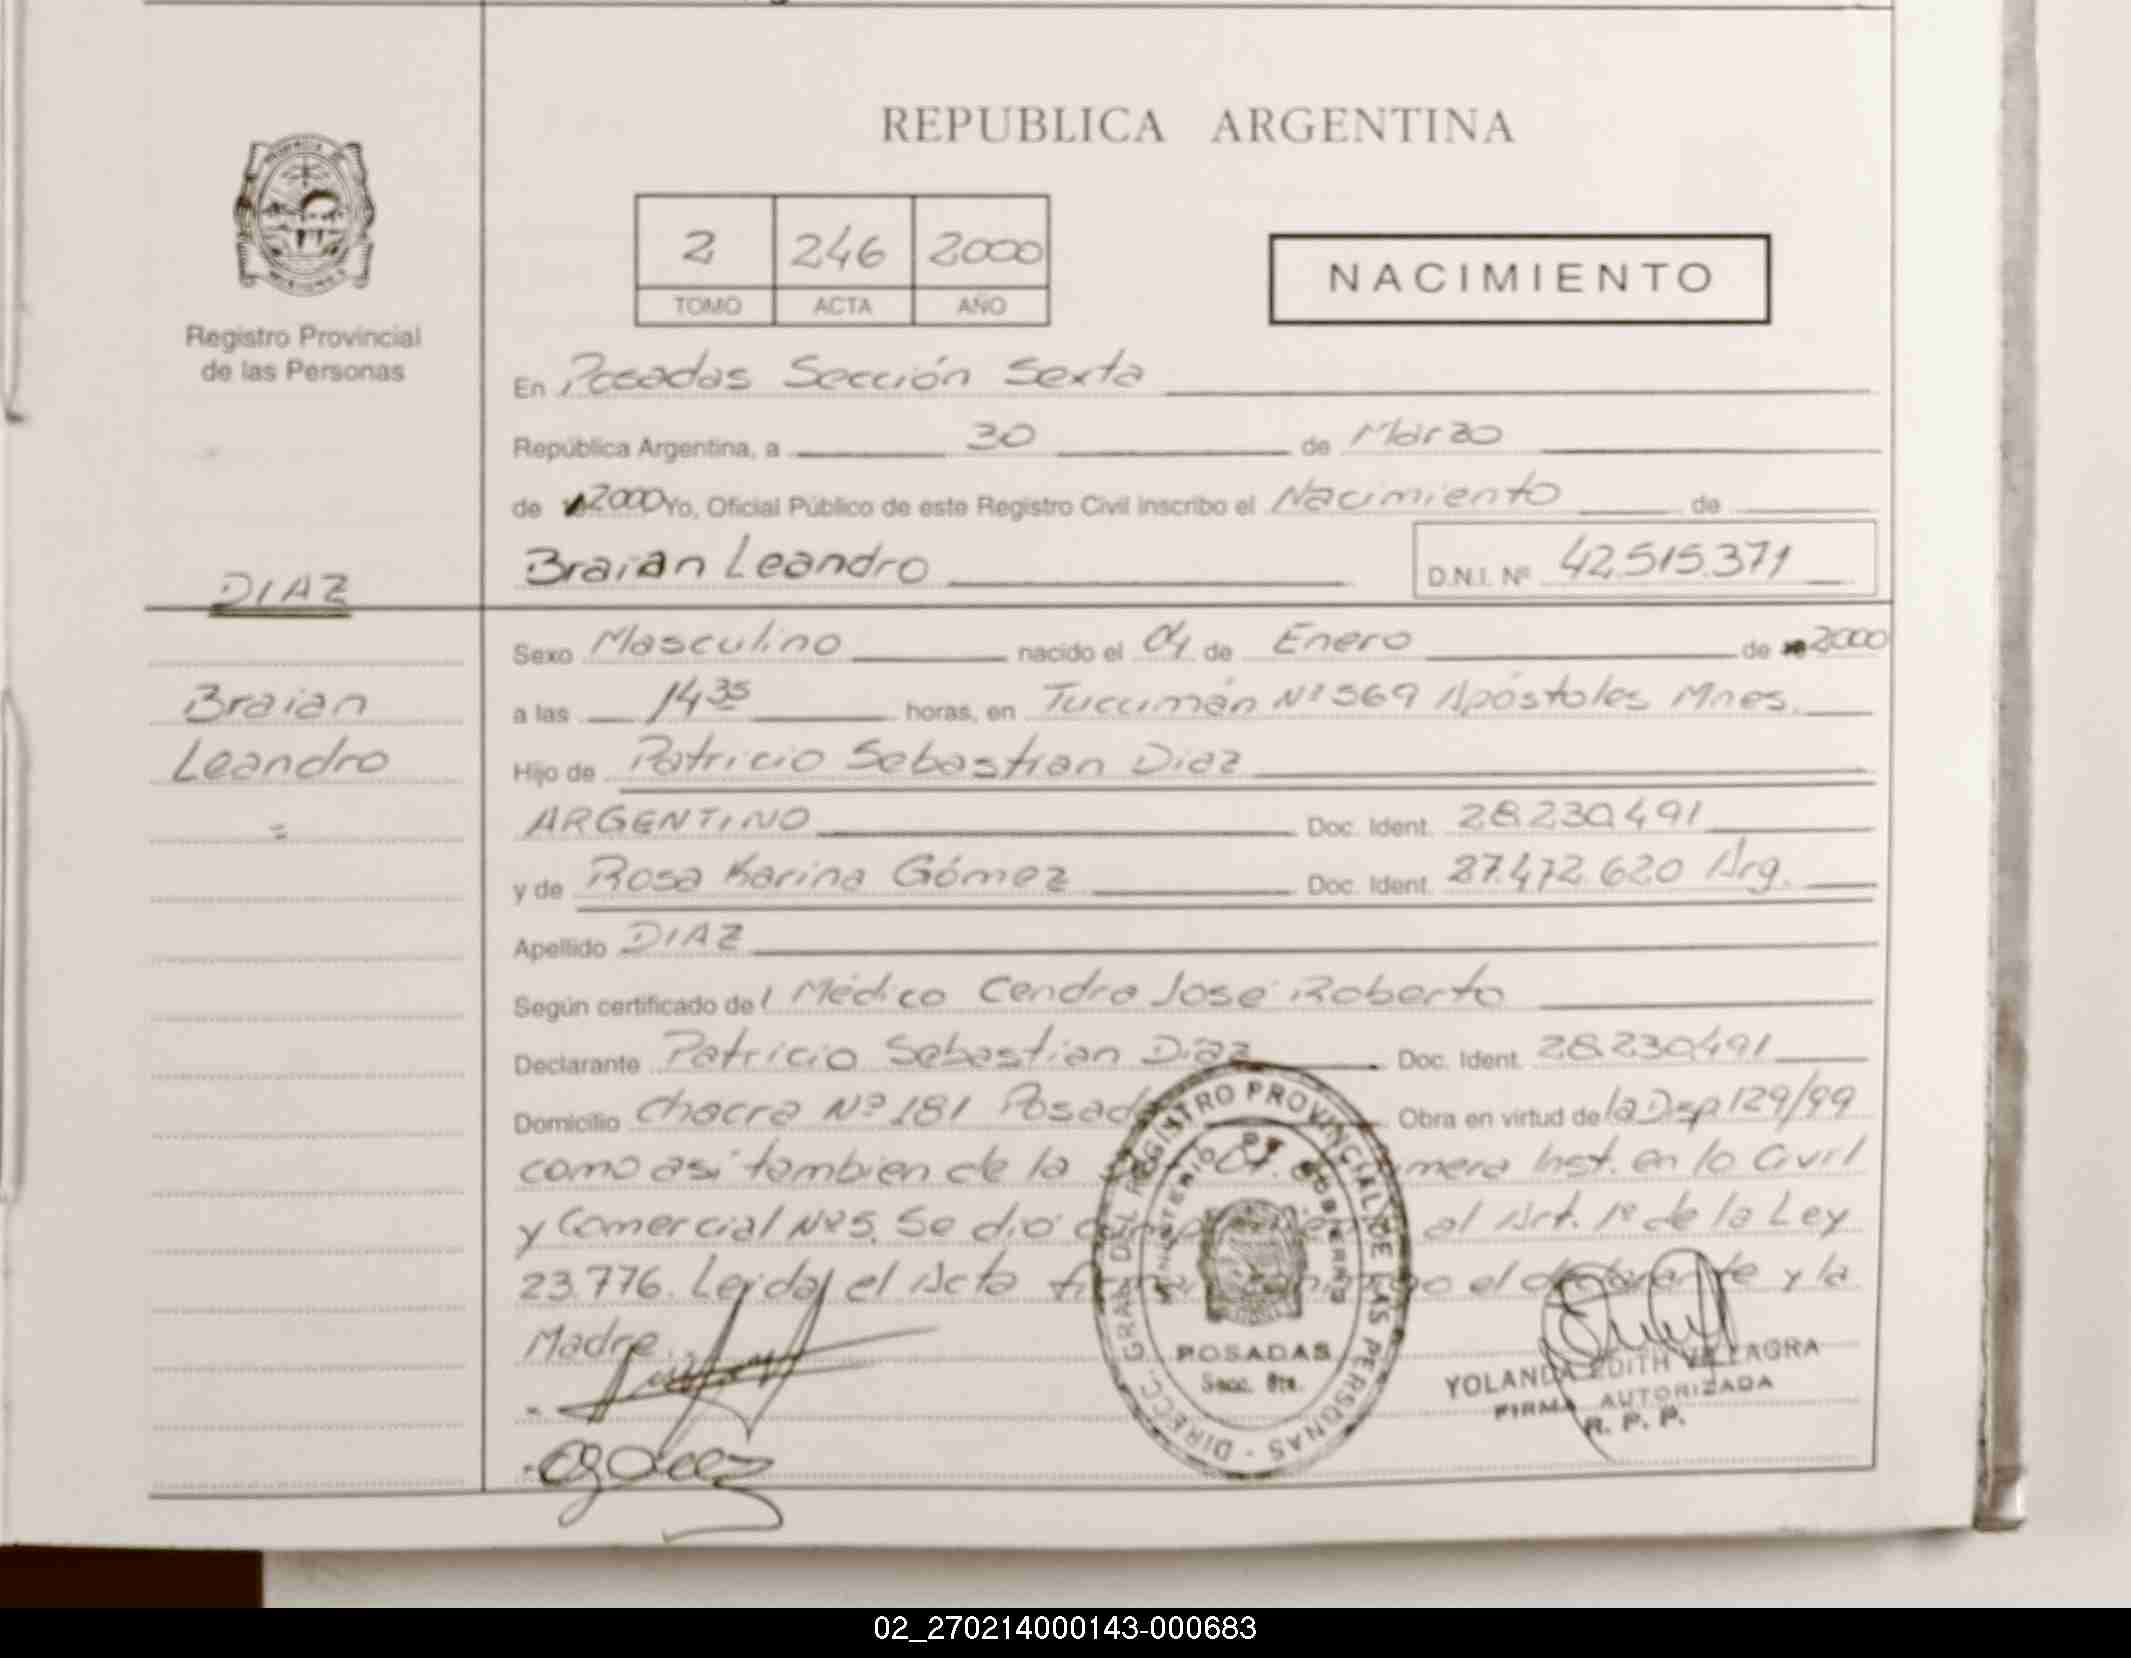 REPUBLICA ARGENTINA
2 246 2000
TOMO ACTA AÑO
NACIMIENTO
Registro Provincial
de las Personas
En Posadas Sección Sexta
República Argentina, a 30 de Marzo
de 2000 Yo, Oficial Público de este Registro Civil inscribo el Nacimiento de
Braian Leandro D.N.I. Nº 42.515.371
DIAZ
Braian
Leandro
=
Sexo Masculino nacido el 04 de Enero de 2000
a las 14 35 horas, en Tucumán Nº 569 Apóstoles Mnes.
Hijo de Patricio Sebastian Diaz
ARGENTINO Doc. Ident. 28.230.491
y de Rosa Karina Gómez Doc. Ident. 27.472.620 Arg.
Apellido DIAZ
Según certificado del Médico Cendra José Roberto
Declarante Patricio Sebastian Diaz Doc. Ident. 28.230.491
Domicilio Chacra Nº 181 Posadas Obra en virtud de la Disp 129/99
como asi tambien de la Inst. en lo Civil
y Comercial Nº 5. Se dió al Art. 1º de la Ley
23.776. Leida el Acta el declarante y la
Madre.
DIRECC. GRAL. DEL REGISTRO PROVINCIAL DE LAS PERSONAS
MINISTERIO DE GOBIERNO
POSADAS
Secc.
YOLANDA EDITH VILLAGRA
FIRMA AUTORIZADA
R. P. P.
02_270214000143-000683